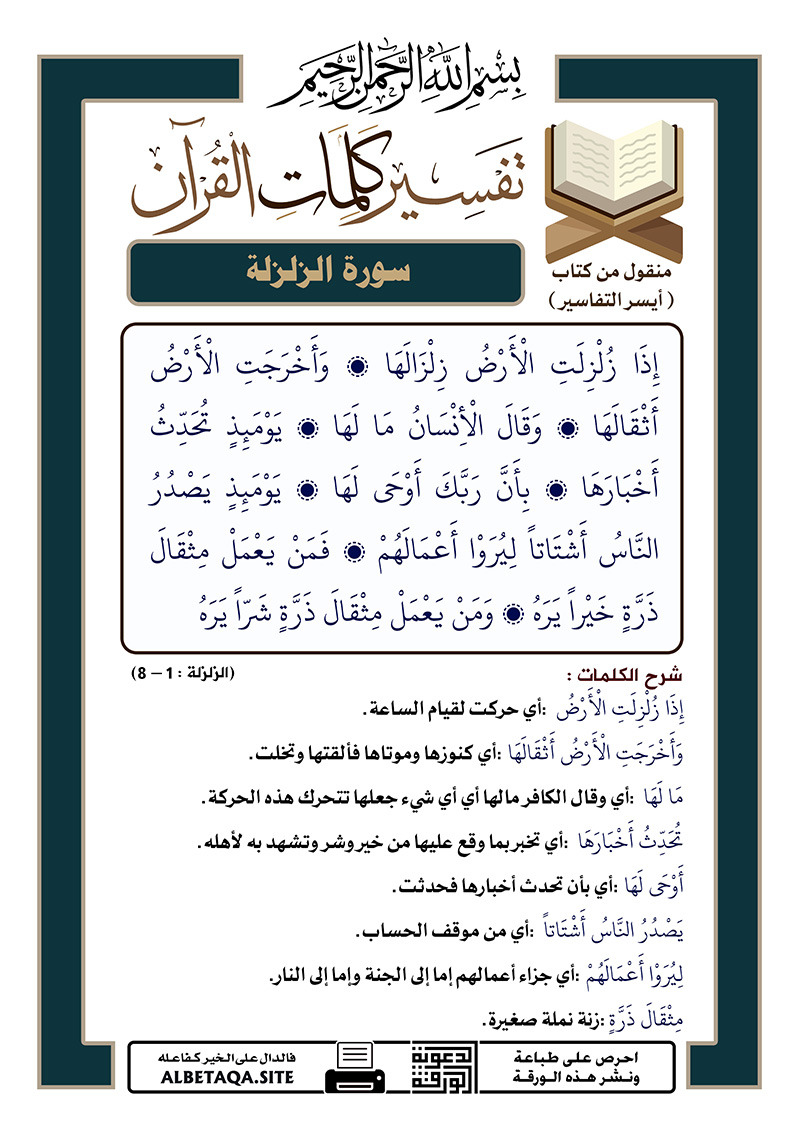 بِسْمِ اللَّهِ الرَّحْمَنِ الرَّحِيمِ
تَفْسِير كَلِمَاتِ الْقُرْآن
منقول من كتاب
( أيسر التفاسير )
سورة الزلزلة
إِذَا زُلْزِلَتِ الْأَرْضُ زِلْزَالَهَا ۞ وَأَخْرَجَتِ الْأَرْضُ
أَثْقَالَهَا ۞ وَقَالَ الْأِنْسَانُ مَا لَهَا ۞ يَوْمَئِذٍ تُحَدِّثُ
أَخْبَارَهَا ۞ بِأَنَّ رَبَّكَ أَوْحَى لَهَا ۞ يَوْمَئِذٍ يَصْدُرُ
النَّاسُ أَشْتَاتاً لِيُرَوْا أَعْمَالَهُمْ ۞ فَمَنْ يَعْمَلْ مِثْقَالَ
ذَرَّةٍ خَيْراً يَرَهُ ۞ وَمَنْ يَعْمَلْ مِثْقَالَ ذَرَّةٍ شَرّاً يَرَهُ
شرح الكلمات :
(الزلزلة : 1 – 8)
إِذَا زُلْزِلَتِ الْأَرْضُ :أي حركت لقيام الساعة.
وَأَخْرَجَتِ الْأَرْضُ أَثْقَالَهَا :أي كنوزها وموتاها فألقتها وتخلت.
مَا لَهَا :أي وقال الكافر مالها أي أي شيء جعلها تتحرك هذه الحركة.
تُحَدِّثُ أَخْبَارَهَا :أي تخبر بما وقع عليها من خير وشر وتشهد به لأهله.
أَوْحَى لَهَا :أي بأن تحدث أخبارها فحدثت.
يَصْدُرُ النَّاسُ أَشْتَاتاً :أي من موقف الحساب.
لِيُرَوْا أَعْمَالَهُمْ :أي جزاء أعمالهم إما إلى الجنة وإما إلى النار.
مِثْقَالَ ذَرَّةٍ :زنة نملة صغيرة.
احرص على طباعة
ونشر هذه الورقة
الورقة
الدعوية
فالدال على الخير كفاعله
ALBETAQA.SITE